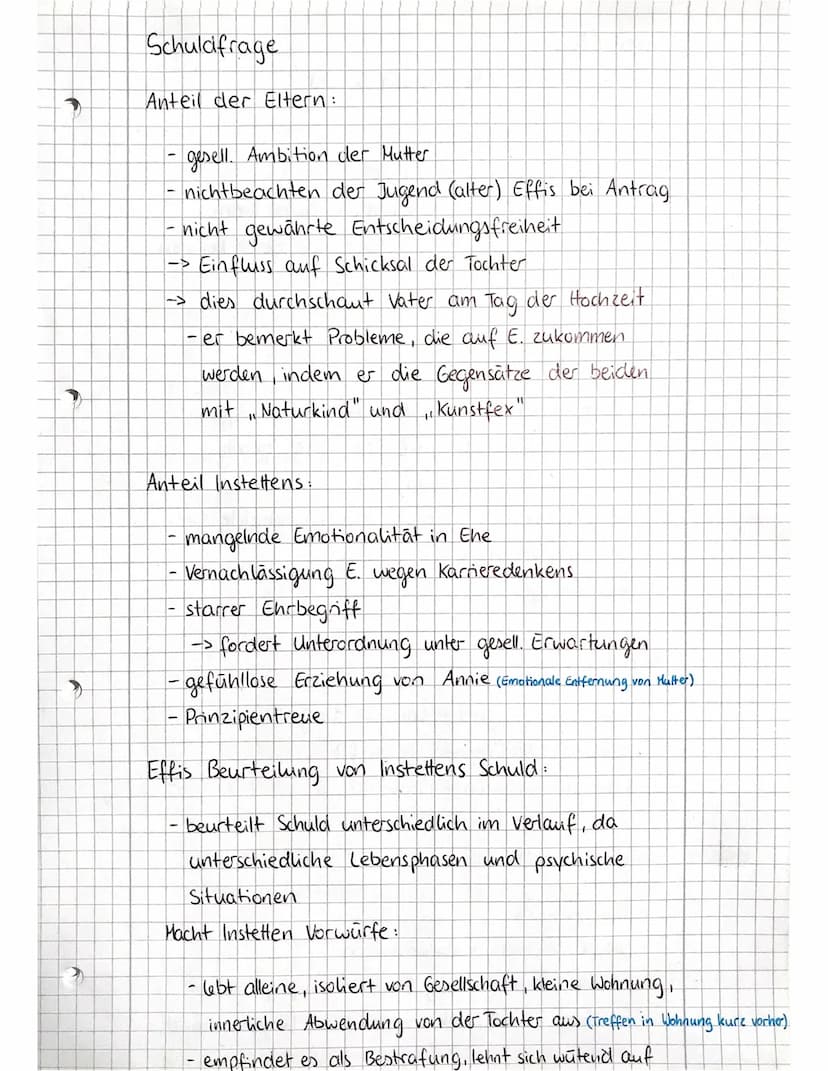 Schuldfrage
Anteil der Eltern:
- gesell. Ambition der Mutter
- nichtbeachten der Jugend (alter) Effis bei Antrag
- nicht gewährte Entscheidungsfreiheit
-> Einfluss auf Schicksal der Tochter
-> dies durchschaut Vater am Tag der Hochzeit
- er bemerkt Probleme, die auf E. zukommen
werden, indem er die Gegensätze der beiden
mit „Naturkind" und „Kunstfex"
Anteil Instettens:
- mangelnde Emotionalität in Ehe
- Vernachlässigung E. wegen Karrieredenkens
- starrer Ehrbegriff
-> fordert Unterordnung unter gesell. Erwartungen
- gefühllose Erziehung von Annie (Emotionale Entfernung von Mutter)
- Prinzipientreue
Effis Beurteilung von Instettens Schuld:
- beurteilt Schuld unterschiedlich im Verlauf, da
unterschiedliche Lebensphasen und psychische
Situationen
Macht Instetten Vorwürfe:
- lebt alleine, isoliert von Gesellschaft, kleine Wohnung,
innerliche Abwendung von der Tochter aus (Treffen in Wohnung kurz vorher)
- empfindet es als Bestrafung, lehnt sich wütend auf